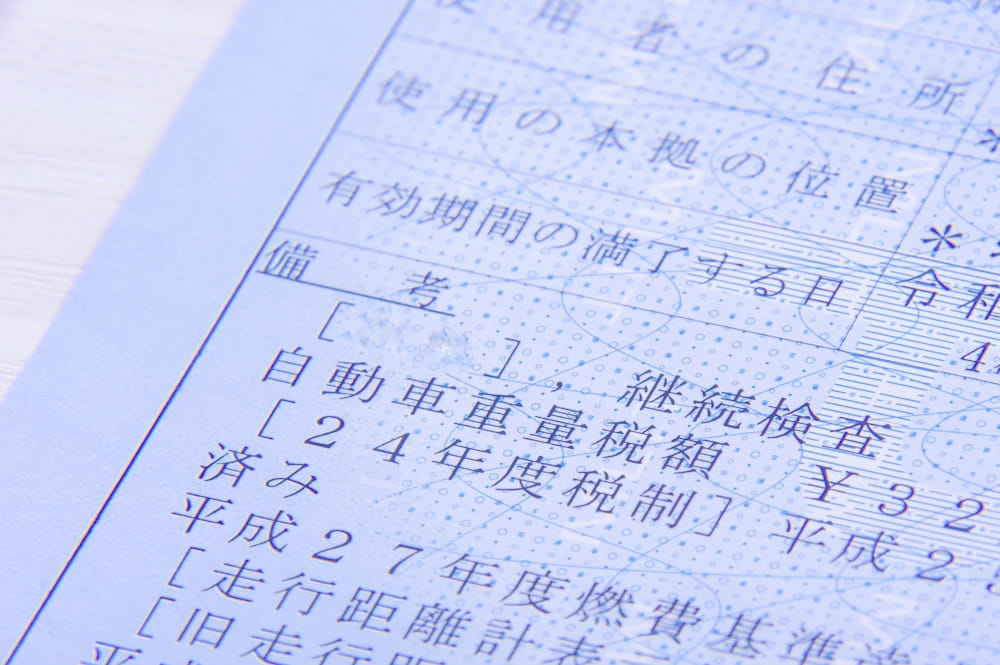 使用者の住所
使用の本拠の位置 *
有効期間の満了する日 令和
4
備考
[ ], 継続検査
自動車重量税額 ¥32
[24年度税制] 平成2
済み
平成27年度燃費基準達
[走行距離計表
[旧走行距
平